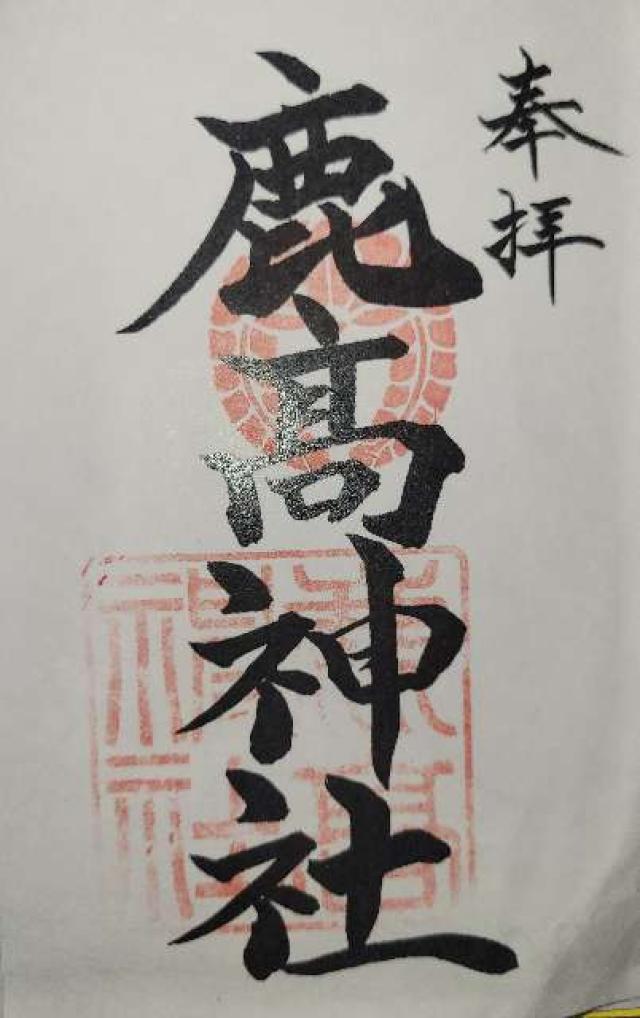 奉拝
鹿髙神社